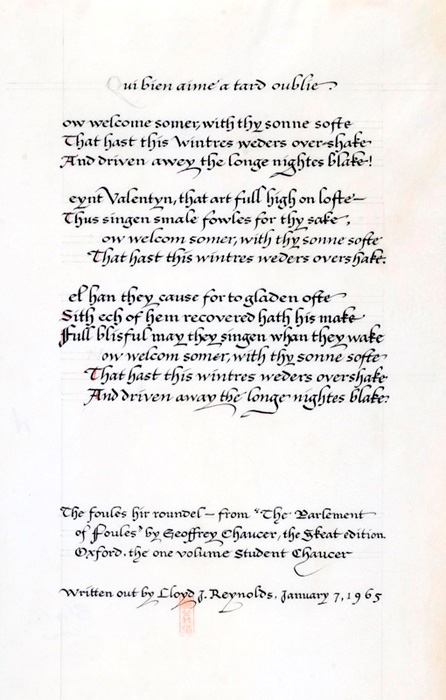 Qui bien aime a tard oublie.
ow welcome somer, with thy sonne softe
That hast this wintres weders over-shake
And driven awey the longe nightes blake!
eynt Valentyn, that art full high on lofte—
Thus singen smale fowles for thy sake,
ow welcom somer, with thy sonne softe
That hast this wintres weders overshake.
el han they cause for to gladen ofte
Sith ech of hem recovered hath his make
Full blisful may they singen whan they wake
ow welcom somer, with thy sonne softe
That hast this wintres weders overshake
And driven away the longe nightes blake.
The foules hir roundel — from "The Parlement
of Foules" by Geoffrey Chaucer, the Skeat edition.
Oxford. the one volume Student Chaucer
Written out by Lloyd J. Reynolds, January 7, 1965